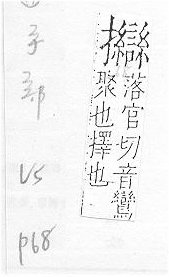 落官切音鸞
聚也擇也
手部 V5 p68